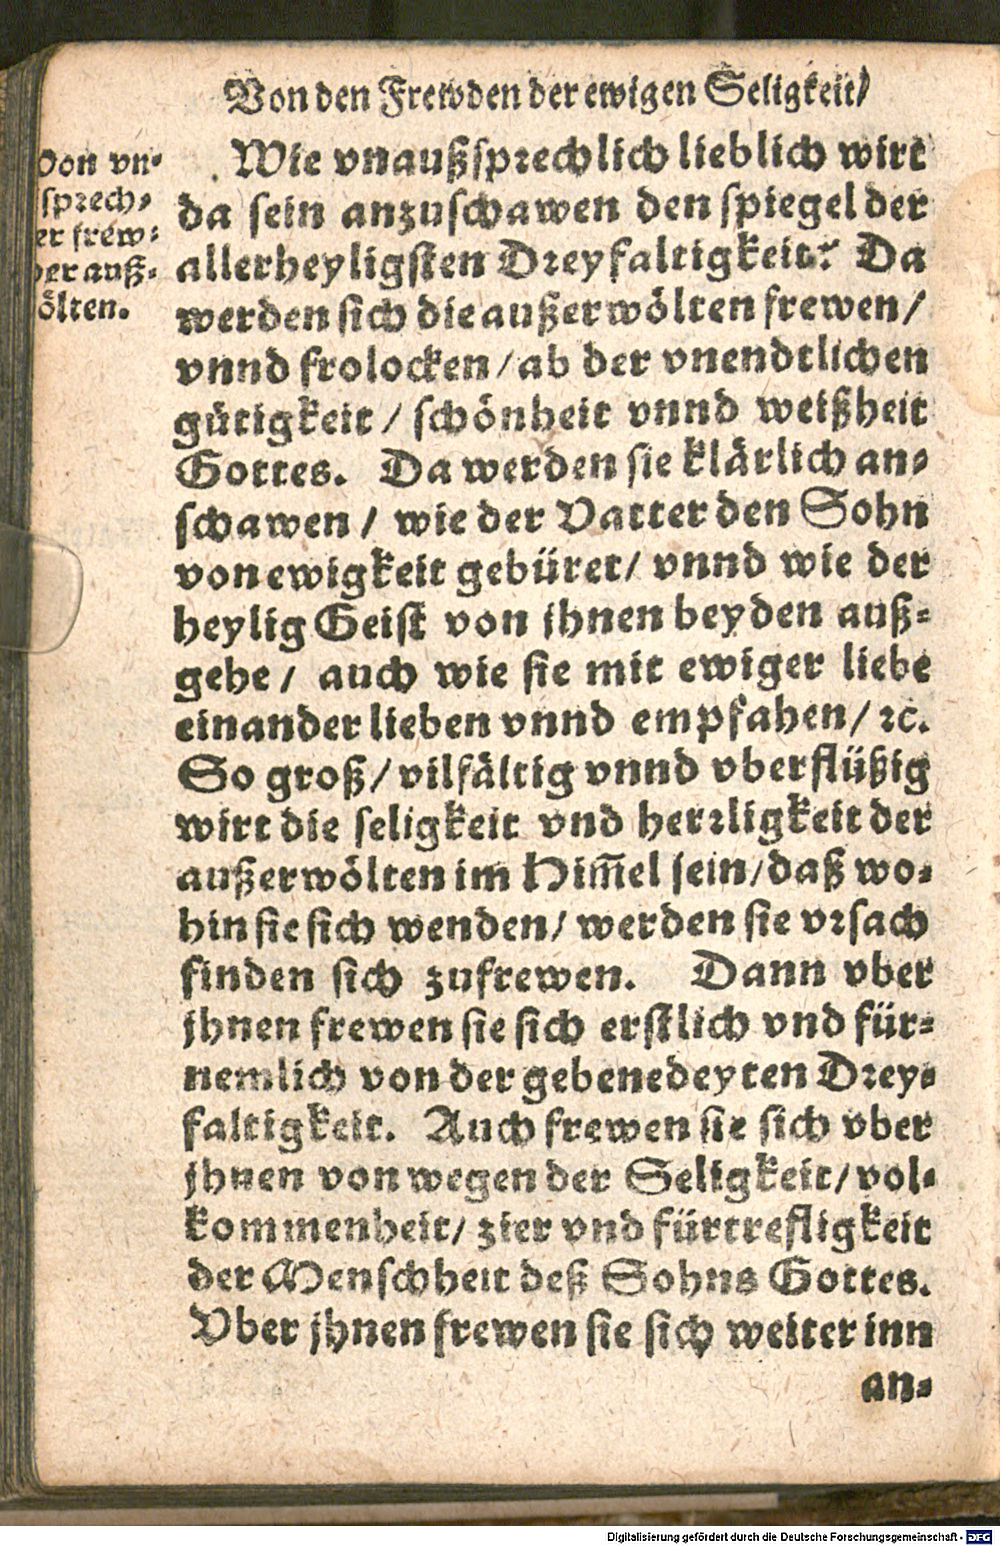 Von den Frewden der ewigen Seligkeit/
Von vn⸗
sprech⸗
er frew⸗
der auß⸗
ölten.
Wie vnaußsprechlich lieblich wirt
da sein anzuschawen den spiegel der
allerheyligsten Dreyfaltigkeit? Da
werden sich die außerwölten frewen/
vnnd frolocken/ ab der vnendtlichen
gütigkeit/ schönheit vnnd weißheit
Gottes. Da werden sie klärlich an⸗
schawen/ wie der Vatter den Sohn
von ewigkeit gebüret/ vnnd wie der
heylig Geist von jhnen beyden auß⸗
gehe/ auch wie sie mit ewiger liebe
einander lieben vnnd empfahen/ ꝛc.
So groß/ vilfältig vnnd vberflüßig
wirt die seligkeit vnd herrligkeit der
außerwölten im Him̃el sein/ daß wo⸗
hin sie sich wenden/ werden sie vrsach
finden sich zufrewen. Dann vber
jhnen frewen sie sich erstlich vnd für⸗
nemlich von der gebenedeyten Drey⸗
faltigkeit. Auch frewen sie sich vber
jhnen von wegen der Seligkeit/ vol⸗
kommenheit/ zier vnd fürtrefligkeit
der Menschheit deß Sohns Gottes.
Vber jhnen frewen sie sich weiter inn
an⸗
Digitalisierung gefördert durch die Deutsche Forschungsgemeinschaft - DFG